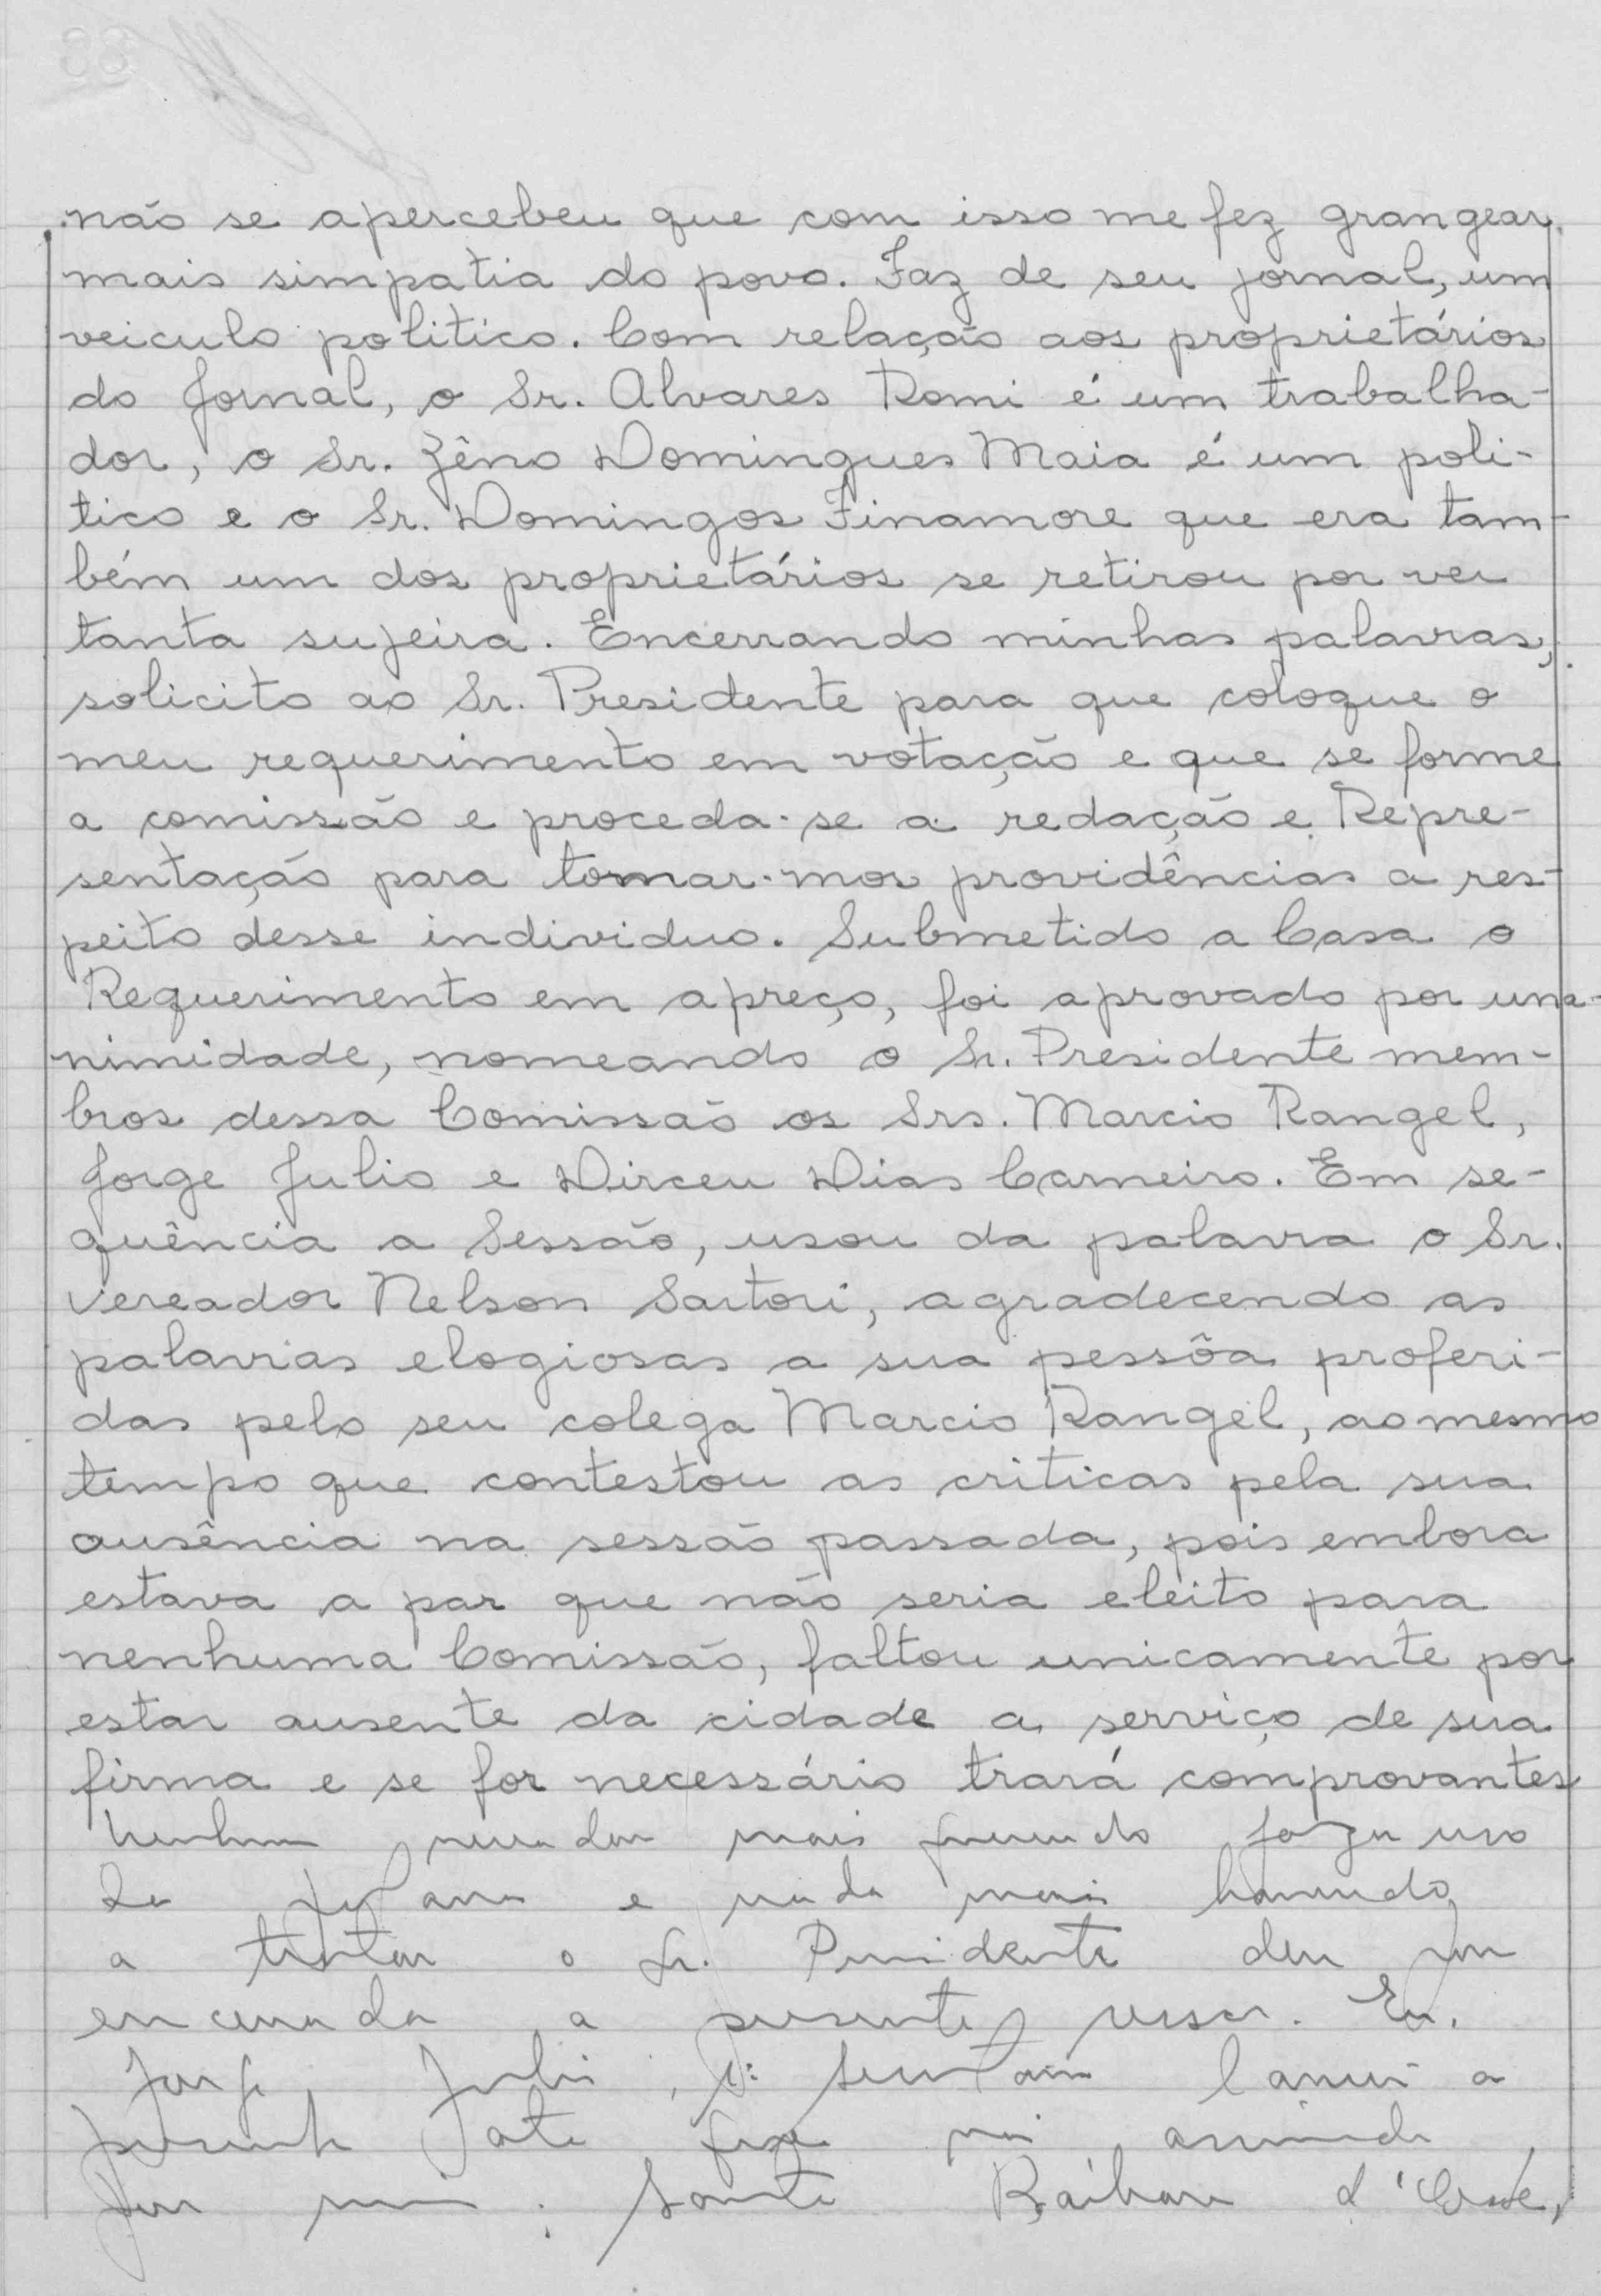 não se apercebeu que com isso me fez grangear
mais simpatia do povo. Faz de seu jornal, um
veiculo politico. Com relação aos proprietários
do Jornal, o Sr. Alvares Romi é um trabalha-
dor, o Sr. Zêno Domingues Maia é um poli-
tico e o Sr. Domingos Finamore que era tam-
bém um dos proprietários se retirou por ver
tanta sujeira. Encerrando minhas palavras,
solicito ao Sr. Presidente para que coloque o
meu requerimento em votação e que se forme
a comissão e proceda-se a redação e Repre-
sentação para tomar-mos providências a res-
peito desse individuo. Submetido a Casa o
Requerimento em apreço, foi aprovado por una-
nimidade, nomeando o Sr. Presidente mem-
bros dessa Comissão os Srs. Marcio Rangel,
Jorge Julio e Dirceu Dias Carneiro. Em se-
quência a Sessão, usou da palavra o Sr.
Vereador Nelson Sartori, agradecendo as
palavras elogiosas a sua pessôa proferi-
das pelo seu colega Marcio Rangel, ao mesmo
tempo que contestou as criticas pela sua
ausência na sessão passada, pois embora
estava a par que não seria eleito para
nenhuma Comissão, faltou unicamente por
estar ausente da cidade a serviço de sua
firma e se for necessário trará comprovantes
Nenhum vereador mais querendo fazer uso
da palavra e nada mais havendo
a tratar o Sr. Presidente deu por
encerrada a presente sessão. Eu,
Jorge Julio, 1º Secretario lavrei a
presente ata que vai assinada
por mim.